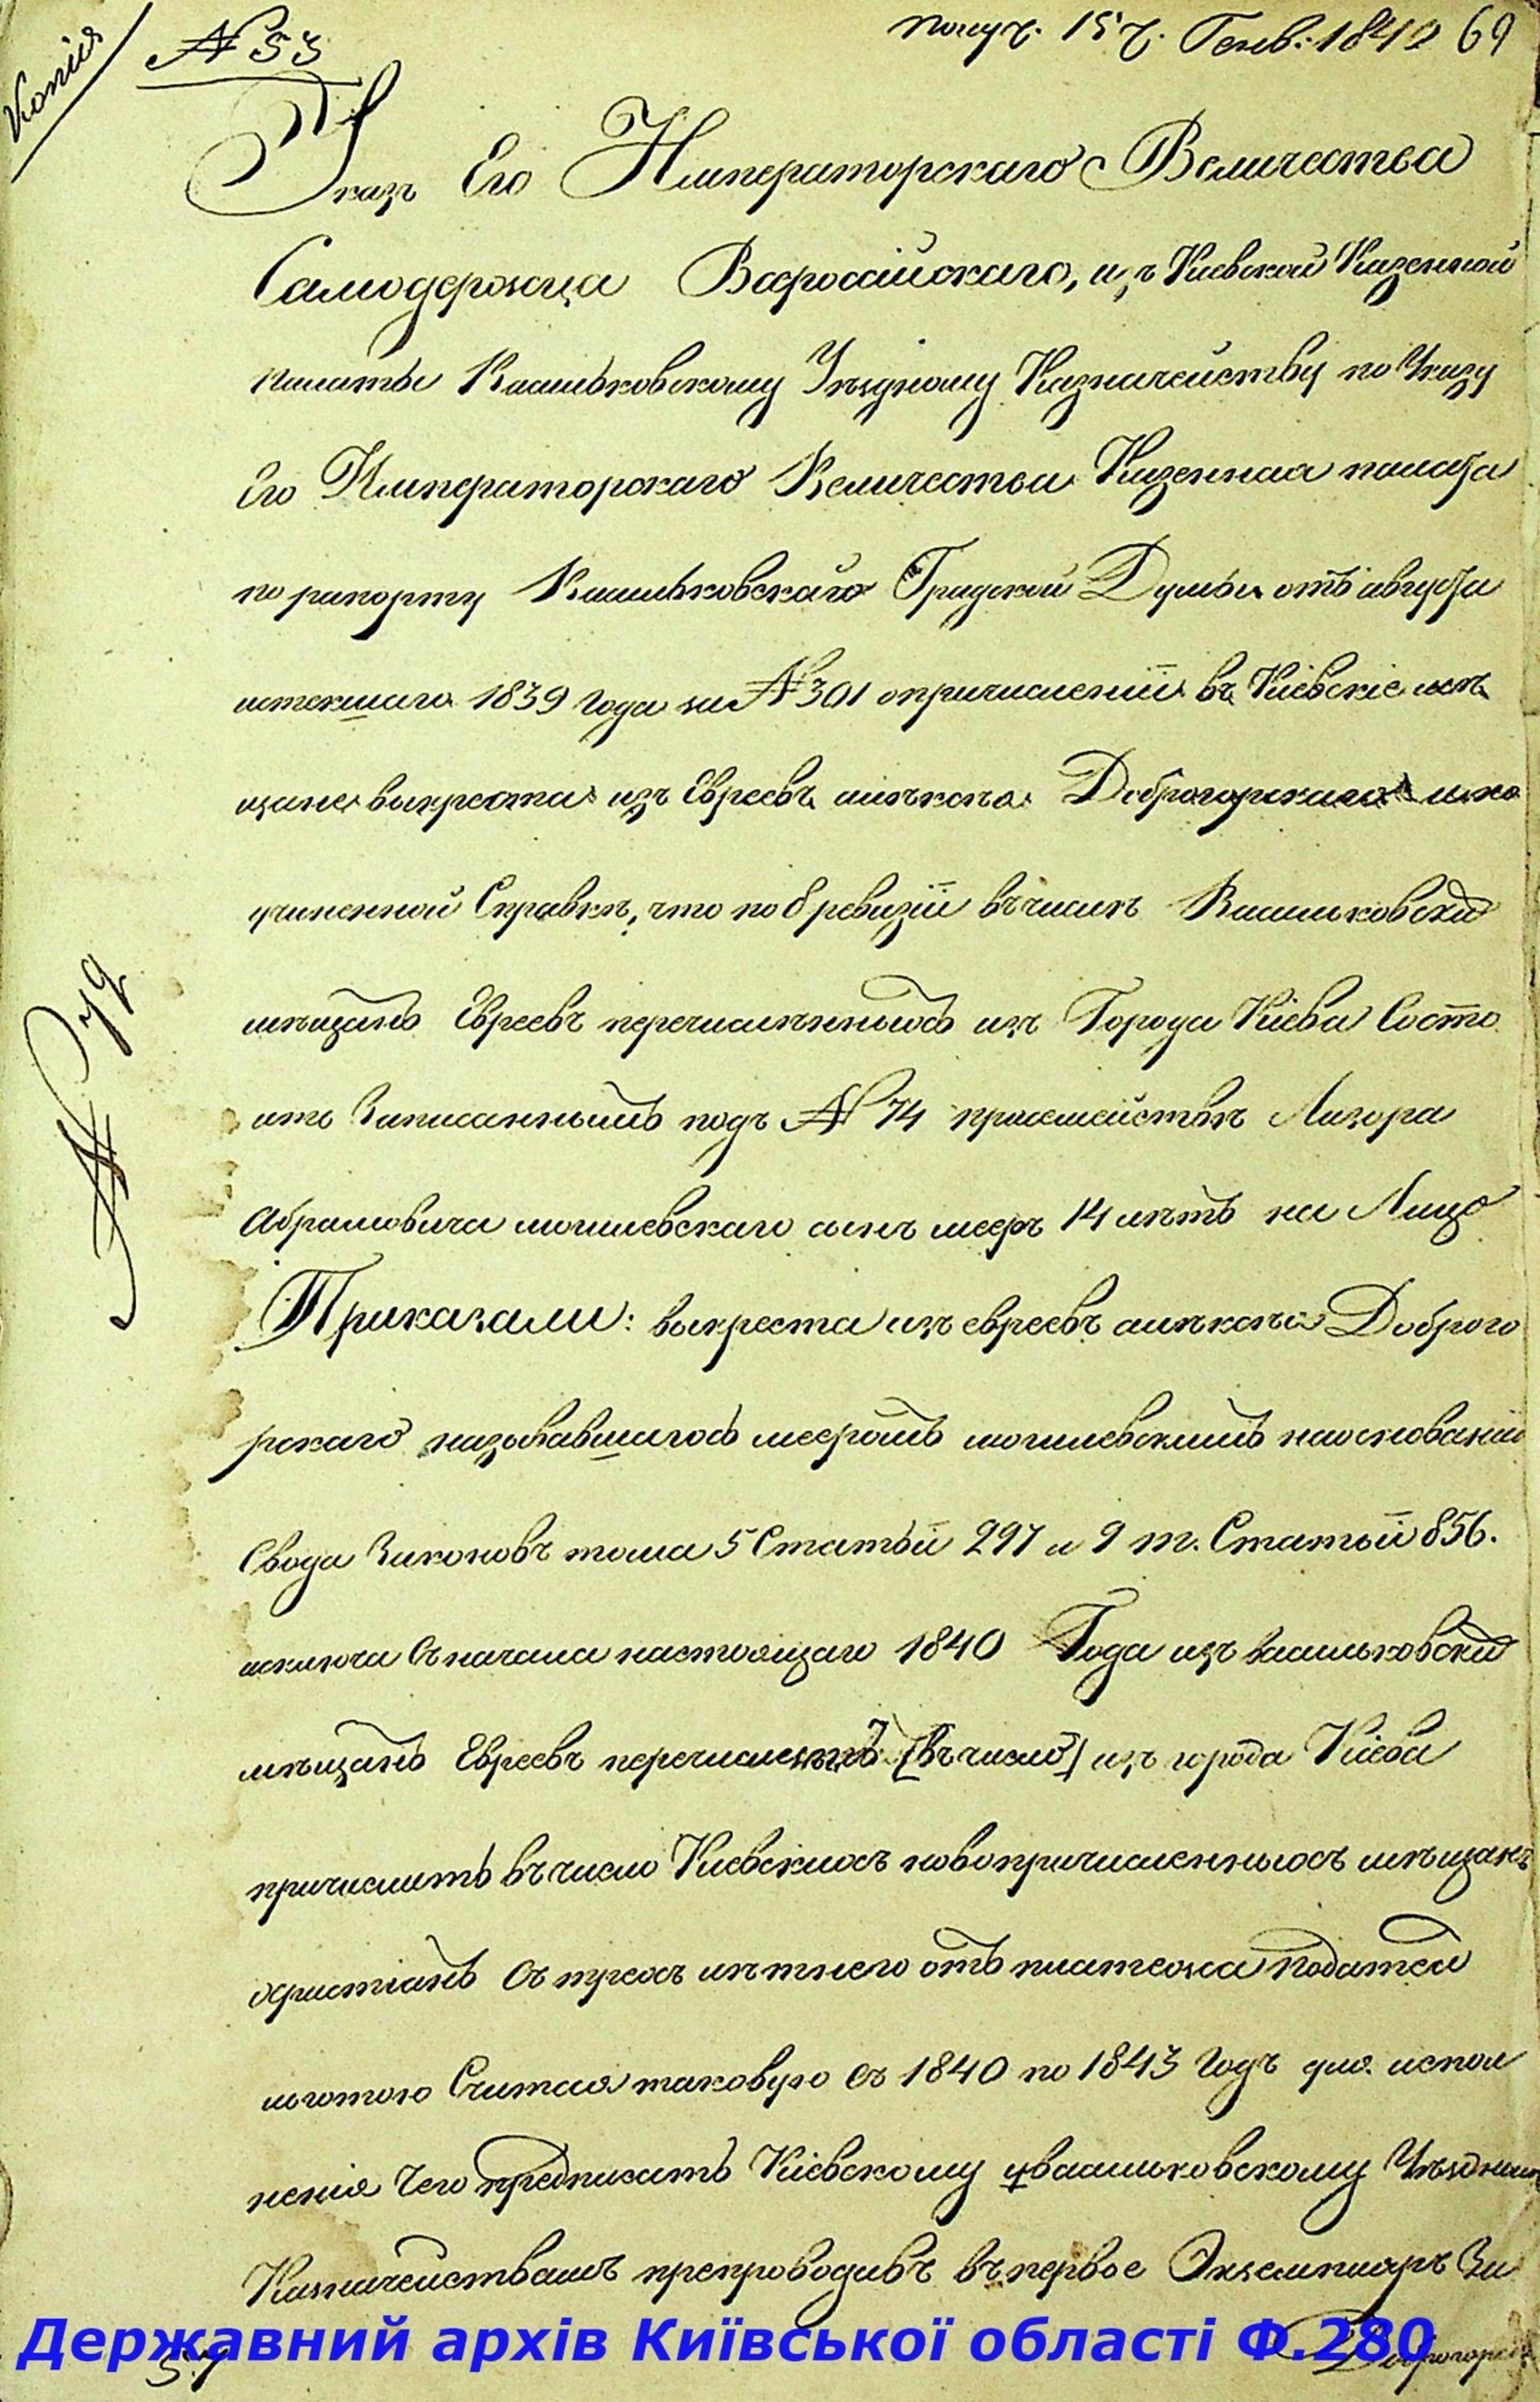 Копія
№ 53
получ. 15 г. Генв: 1840 69
Указъ Его Императорскаго Величества
Самодержца Всероссійскаго, изъ Киевской Казенной
палаты Васильковскому Уездному Казначейству по Указу
Его Императорскаго Величества Казенная палата
по рапорту Васильковскаго Градской Думы отъ августа
истекшаго 1839 года за № 301 опричислении въ Кіевскіе мѣ
щане выкреста изъ Евреевъ алѣксѣя Доброгорскаго и по
учиненной Справкѣ, что по 8 ревизіи вчислѣ Васильковскихъ
мѣщанъ Евреевъ перечисленныхъ изъ Города Кіева Состо
итъ Записаннымъ подъ № 74 присемействѣ Лазора
Абрамовича могилевскаго сынъ мееръ 14 лѣтъ на Лицо
Приказали: выкреста изъ евреевъ алѣксѣя Доброго
рскаго называвшагось мееромъ могилевскимъ наосновании
Свода Законовъ тома 5 Статьи 297 и 9 т. Статьи 856.
исключа съ начала настоящаго 1840 Года изъ васильковскихъ
мѣщанъ Евреевъ перечисленныхъ [въ число] изъ города Кіева
причислить въ число Киевскихъ новопричисленныхъ мѣщанъ
христіанъ съ трехъ лѣтнею отъ платежа податей
льготою Считая таковую съ 1840 по 1843 Годъ для испол
ненія чего предписать Кіевскому и васильковскому Уѣзднымъ
Казначействамъ препроводивъ въ первое Экземпляръ За
№ 79
57
Доброгорск
Державний архів Київської області Ф.280